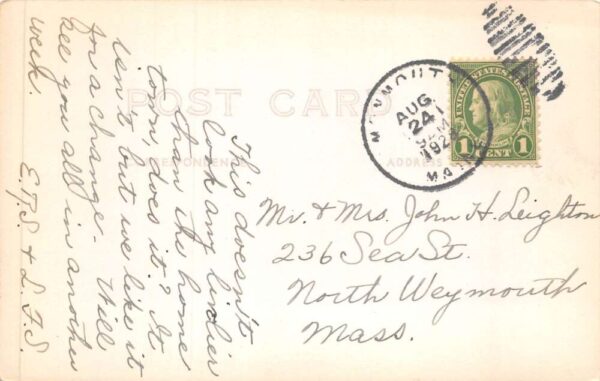 POST CARD
CORRESPONDENCE
ADDRESS
This doesn't
look any livelier
than the home
town, does it? It
isn't but we like it
for a change. Will
see you all in another
week.
E.P.S. & L.F.S.
MONMOUTH
AUG
24
9 AM
MAINE
UNITED STATES POSTAGE
1 CENT 1
Mr. & Mrs. John H. Leighton
236 Sea St.
North Weymouth
Mass.